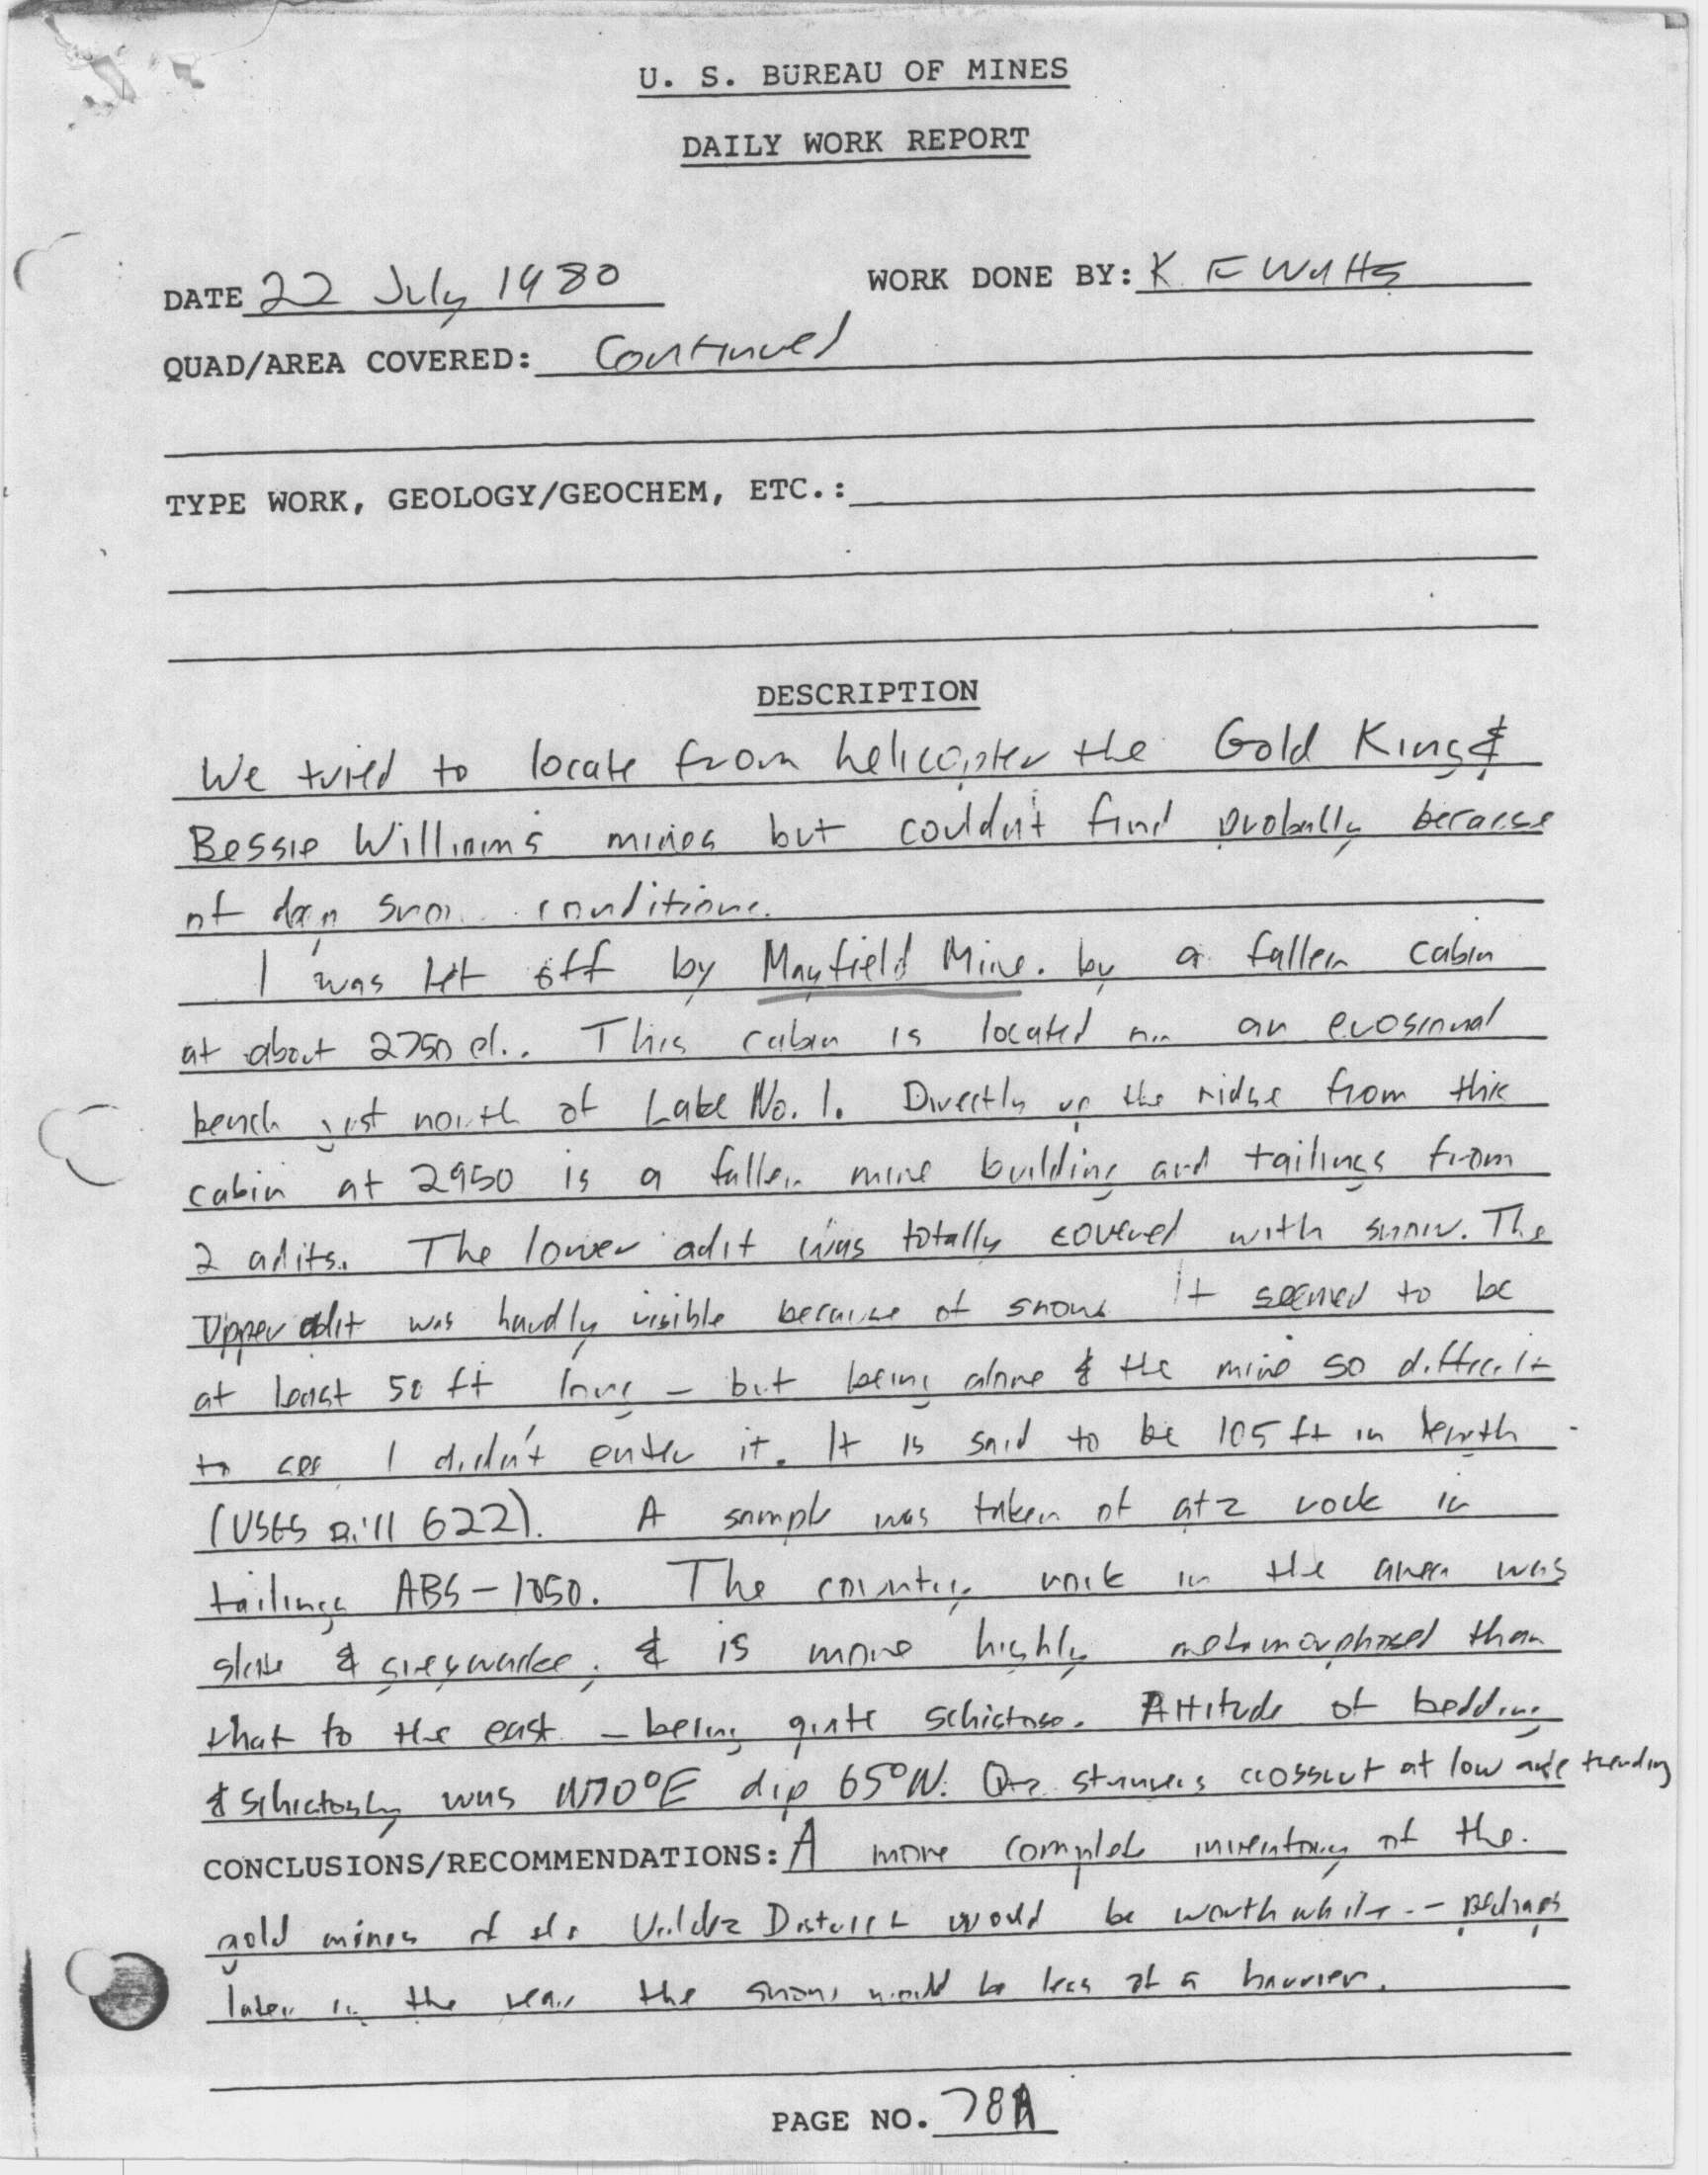 U. S. BUREAU OF MINES
DAILY WORK REPORT
DATE 22 July 1980 WORK DONE BY: K F Watts
QUAD/AREA COVERED: Continued
TYPE WORK, GEOLOGY/GEOCHEM, ETC.:
DESCRIPTION
We tried to locate from helicopter the Gold King &
Bessie Williams mines but couldn't find probably because
of deep snow conditions.
I was let off by Mayfield Mine. by a fallen cabin
at about 2750 el.. This cabin is located on an erosional
bench just north of Lake No. 1. Directly up the ridge from this
cabin at 2950 is a fallen mine building and tailings from
2 adits. The lower adit was totally covered with snow. The
Upper adit was hardly visible because of snow. It seemed to be
at least 50 ft long - but being alone & the mine so difficult
to see I didn't enter it. It is said to be 105 ft in length
(USGS Bull 622). A sample was taken of qtz rock in
tailings ABS-1050. The country rock in the area was
slate & greywacke, & is more highly metamorphosed than
that to the east - being quite schistose. Attitude of bedding
& schistosity was N70°E dip 65°N. Qtz stringers crosscut at low angle trending
CONCLUSIONS/RECOMMENDATIONS: A more complete inventory of the
gold mines of the Valdez District would be worthwhile - Perhaps
later in the year the snow would be less of a barrier.
PAGE NO. 78A